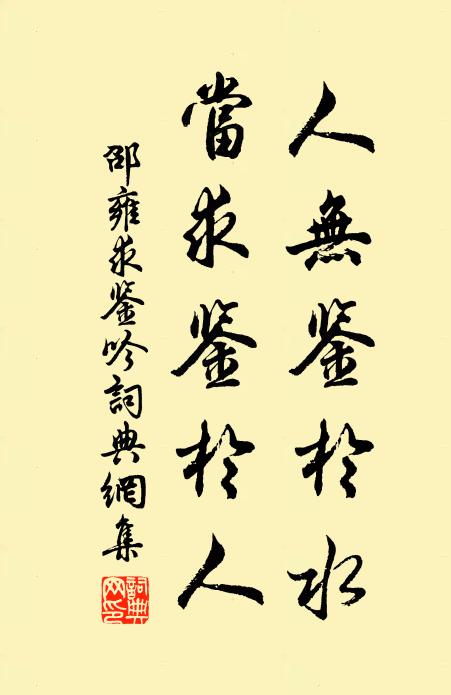 人無鉴於水
當求鉴於人
邵雍求鉴吟詞典網集
詞典網印